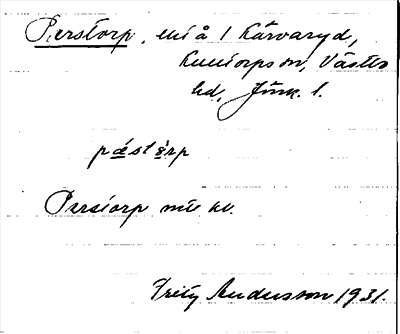 Perstorp, uti å 1 Kårvaryd,
Kumlorpson, Västbo
hd, Jönk. l.
pæstårp
Perstorp mtl kl.
Fritz Andersson 1931.